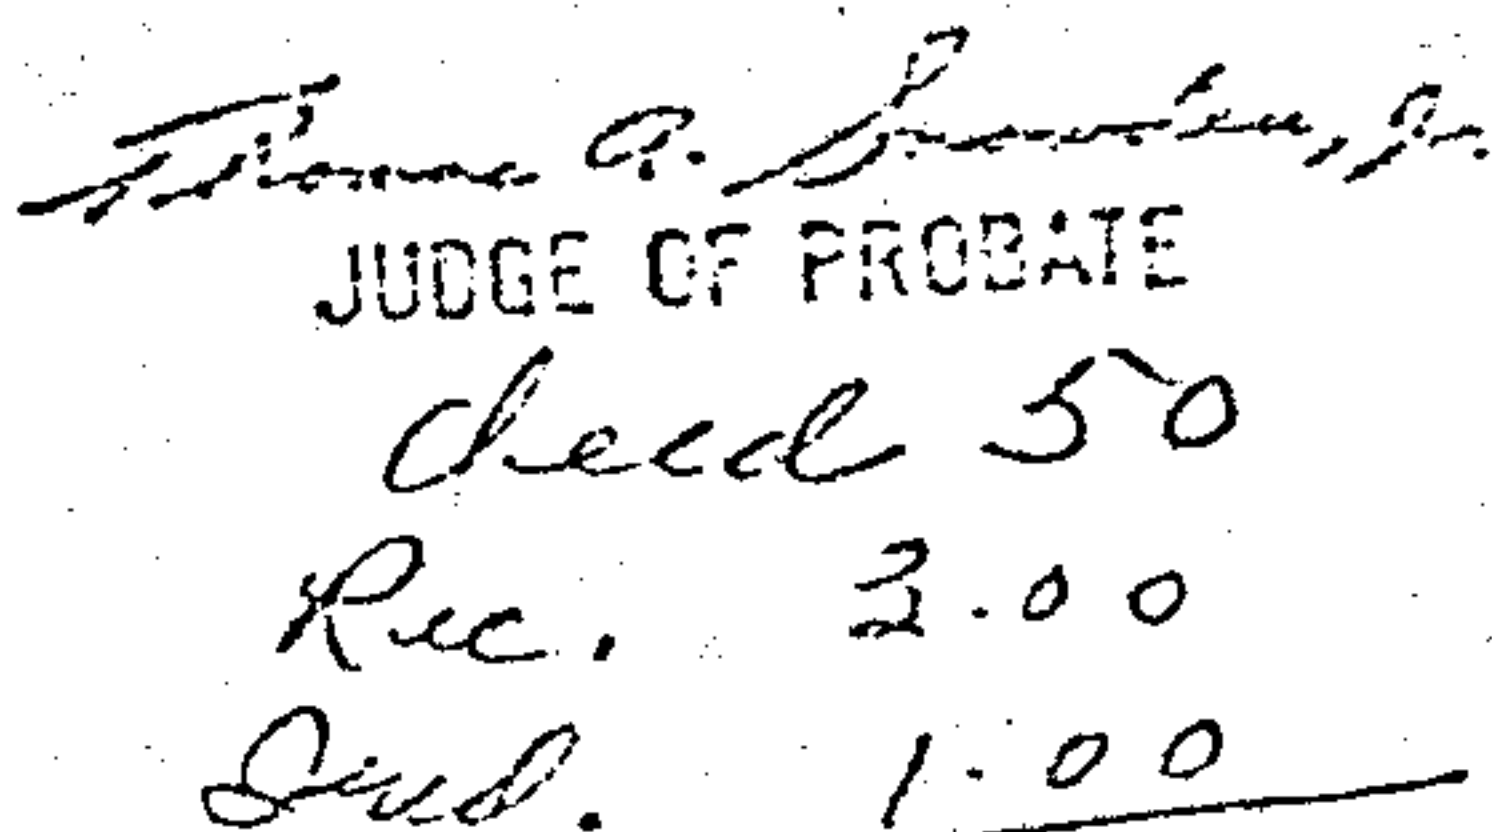 Thomas A. Snowden, Jr.
JUDGE OF PROBATE
deed 50
Rec. 3.00
Ind. 1.00